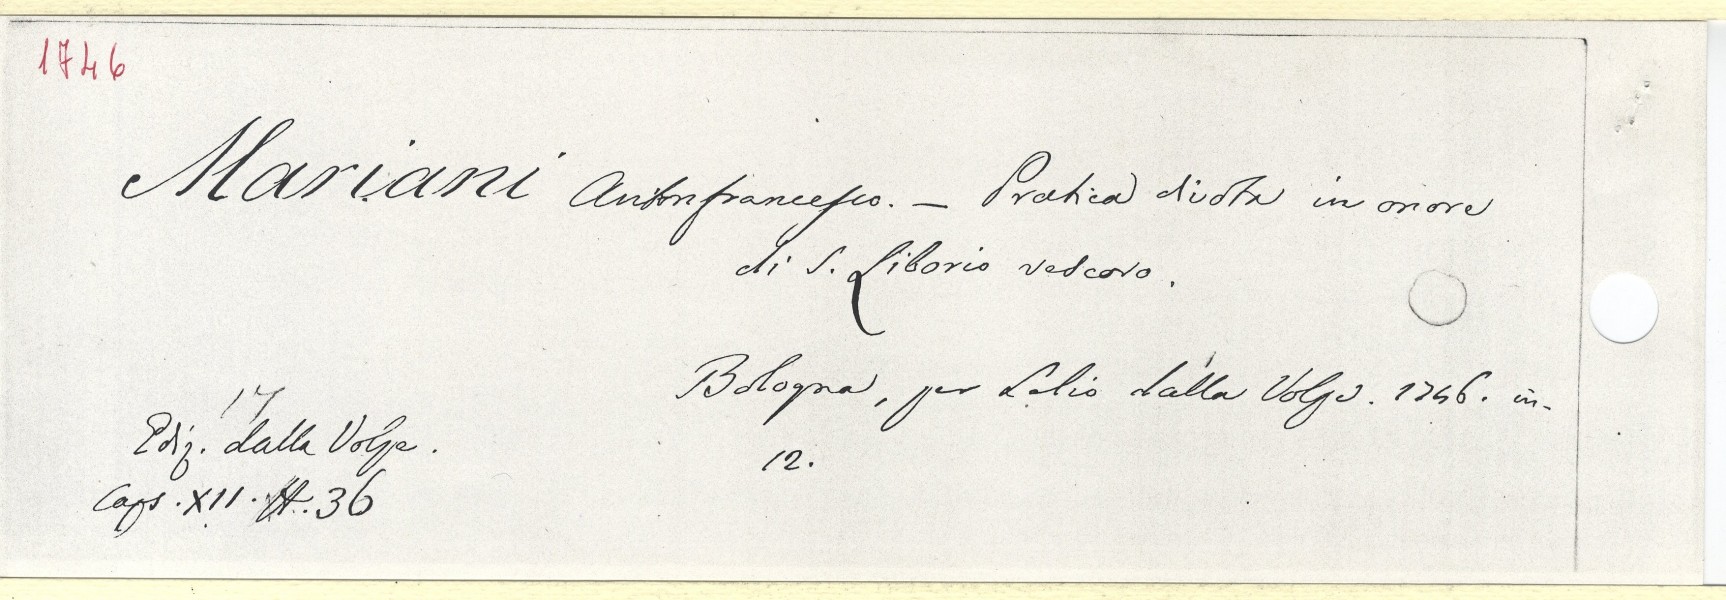 1746
Mariani Antonfrancesco. — Pratica divota in onore
di S. Liborio vescovo.
Bologna, per Lelio dalla Volpe. 1746. in-
12.
17
Ediz. dalla Volpe.
Caps. XII. 36